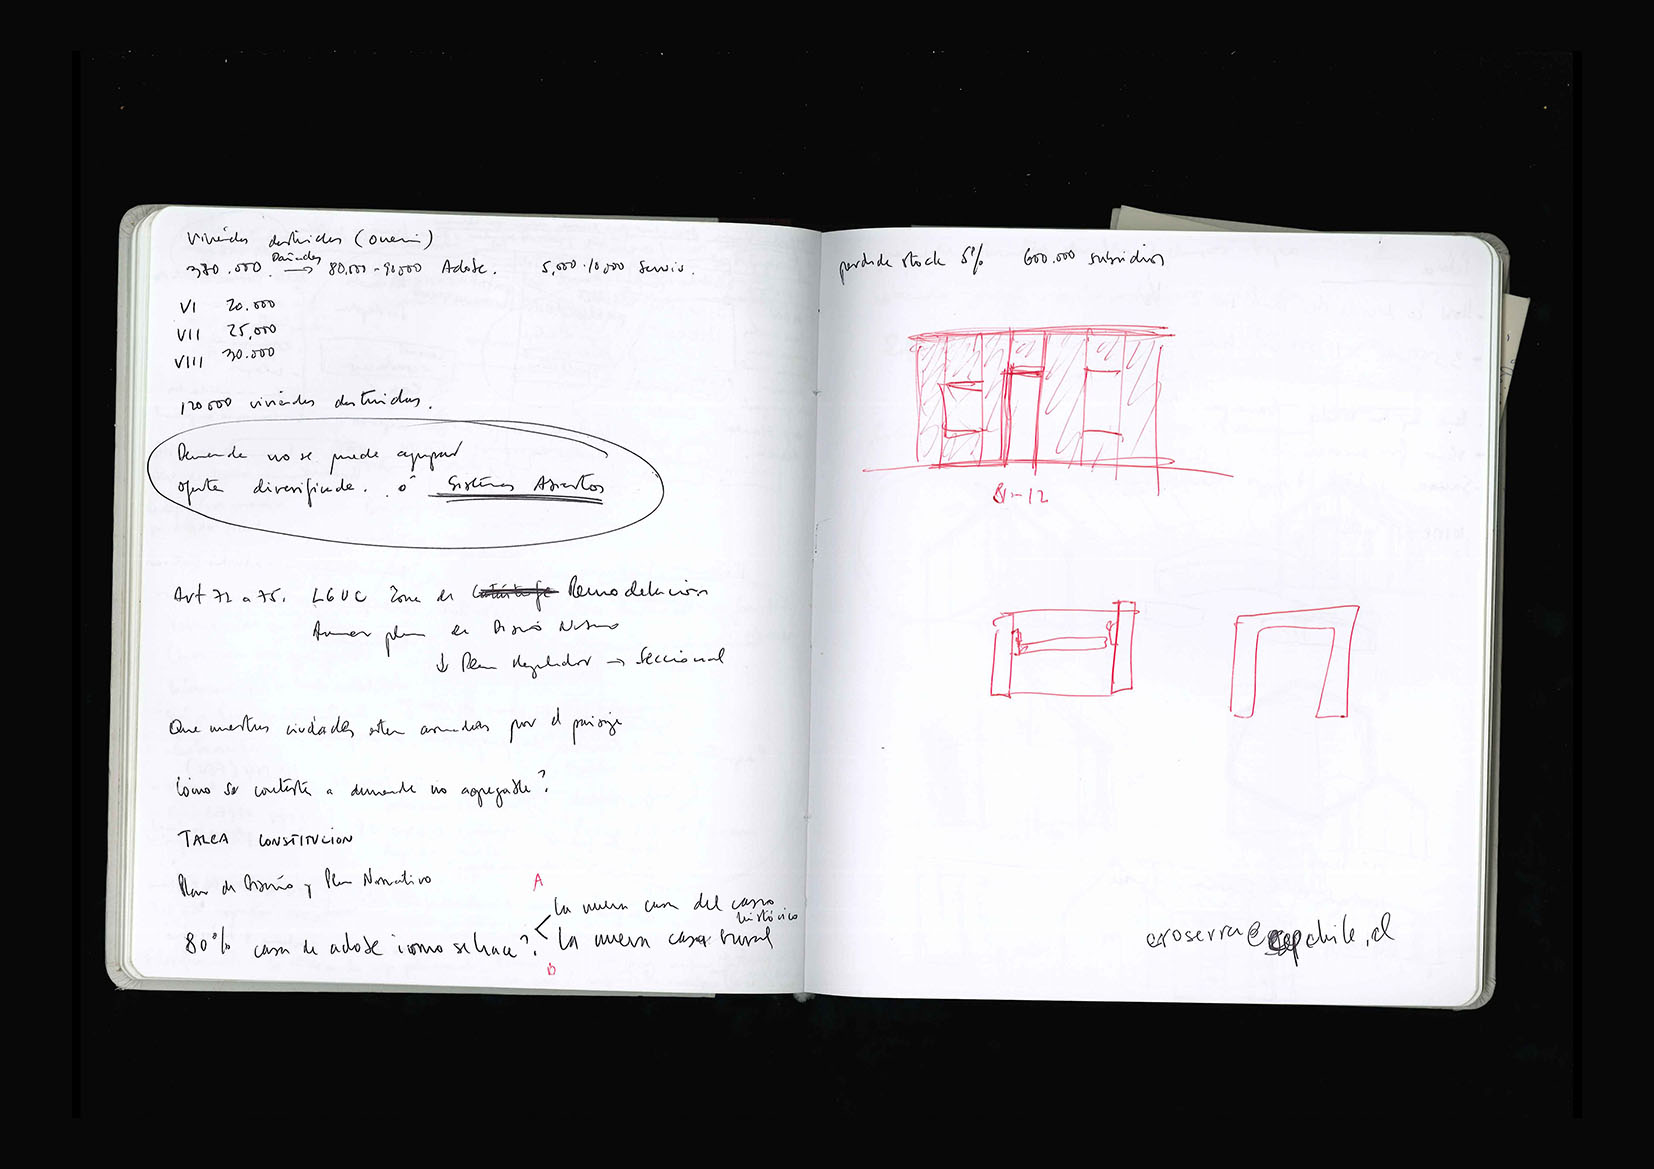 Viviendas destruidas (Onemi)
380.000 Dañadas → 80.000-90.000 Adobe. 5,000-10,000 Servic.
VI 20.000
VII 25,000
VIII 30.000
120000 viviendas destruidas.
Demanda no se puede agrupar
oferta diversificada. ó Sistemas Abiertos
Art 72 a 75. LGUC Zona de Remodelacion
plan de Diseño
↓ Plan Regulador → Seccional
Que nuestras ciudades esten armadas por el paisaje
Como se contesta a demanda no agregable?
TALCA CONSTITUCION
Plan de Diseño y Plan Normativo
A
la nueva casa del casco histórico
80% casa de adobe ¿como se hace? < la nueva casa rural
B
perdida stock 5% 600.000 subsidios
12